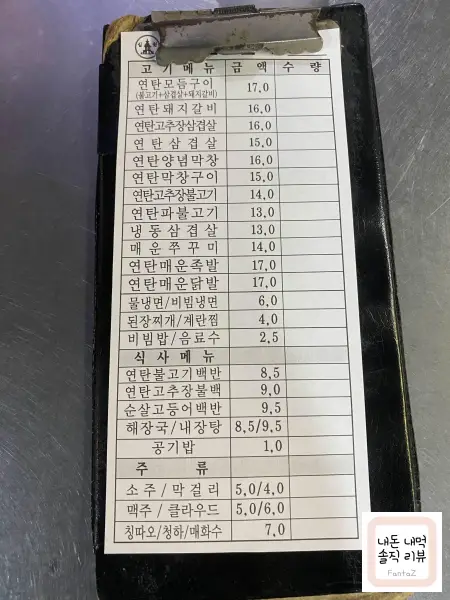 고기메뉴 금액 수량
연탄모듬구이 17,0
(불고기+삼겹살+돼지갈비)
연탄돼지갈비 16,0
연탄고추장삼겹살 16,0
연탄삼겹살 15,0
연탄양념막창 16,0
연탄막창구이 15,0
연탄고추장불고기 14,0
연탄파불고기 13,0
냉동삼겹살 13,0
매운쭈꾸미 14,0
연탄매운족발 17,0
연탄매운닭발 17,0
물냉면/비빔냉면 6,0
된장찌개/계란찜 4,0
비빔밥/음료수 2,5
식사메뉴
연탄불고기백반 8,5
연탄고추장불백 9,0
순살고등어백반 9,5
해장국/내장탕 8,5/9,5
공기밥 1,0
주류
소주/막걸리 5,0/4,0
맥주/클라우드 5,0/6,0
칭따오/청하/매화수 7,0
내돈내먹
솔직리뷰
FuntaZ